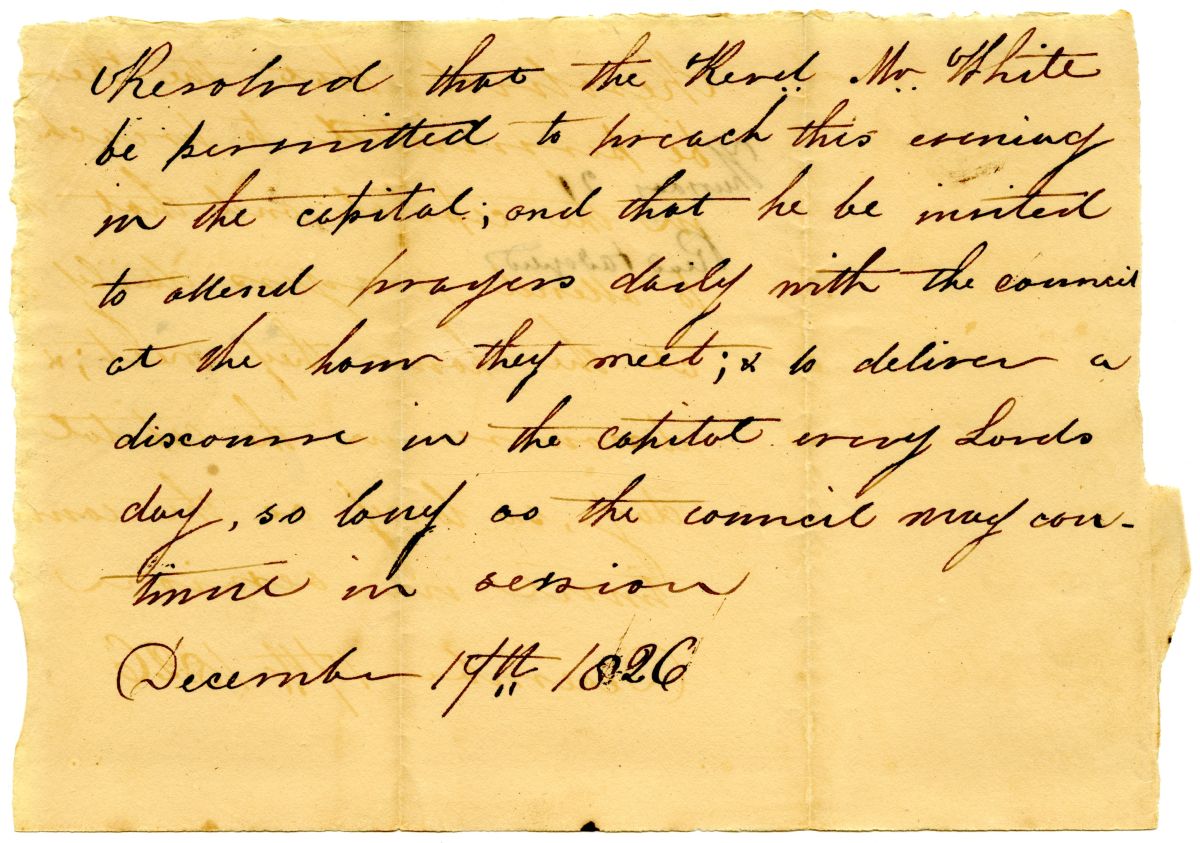 Resolved that the Revd. Mr. White
be permitted to preach this evening
in the capital; and that he be invited
to attend prayers daily with the council
at the hour they meet; & to deliver a
discourse in the capital every Lords
day, so long as the council may con-
tinue in session
December 19th 1826